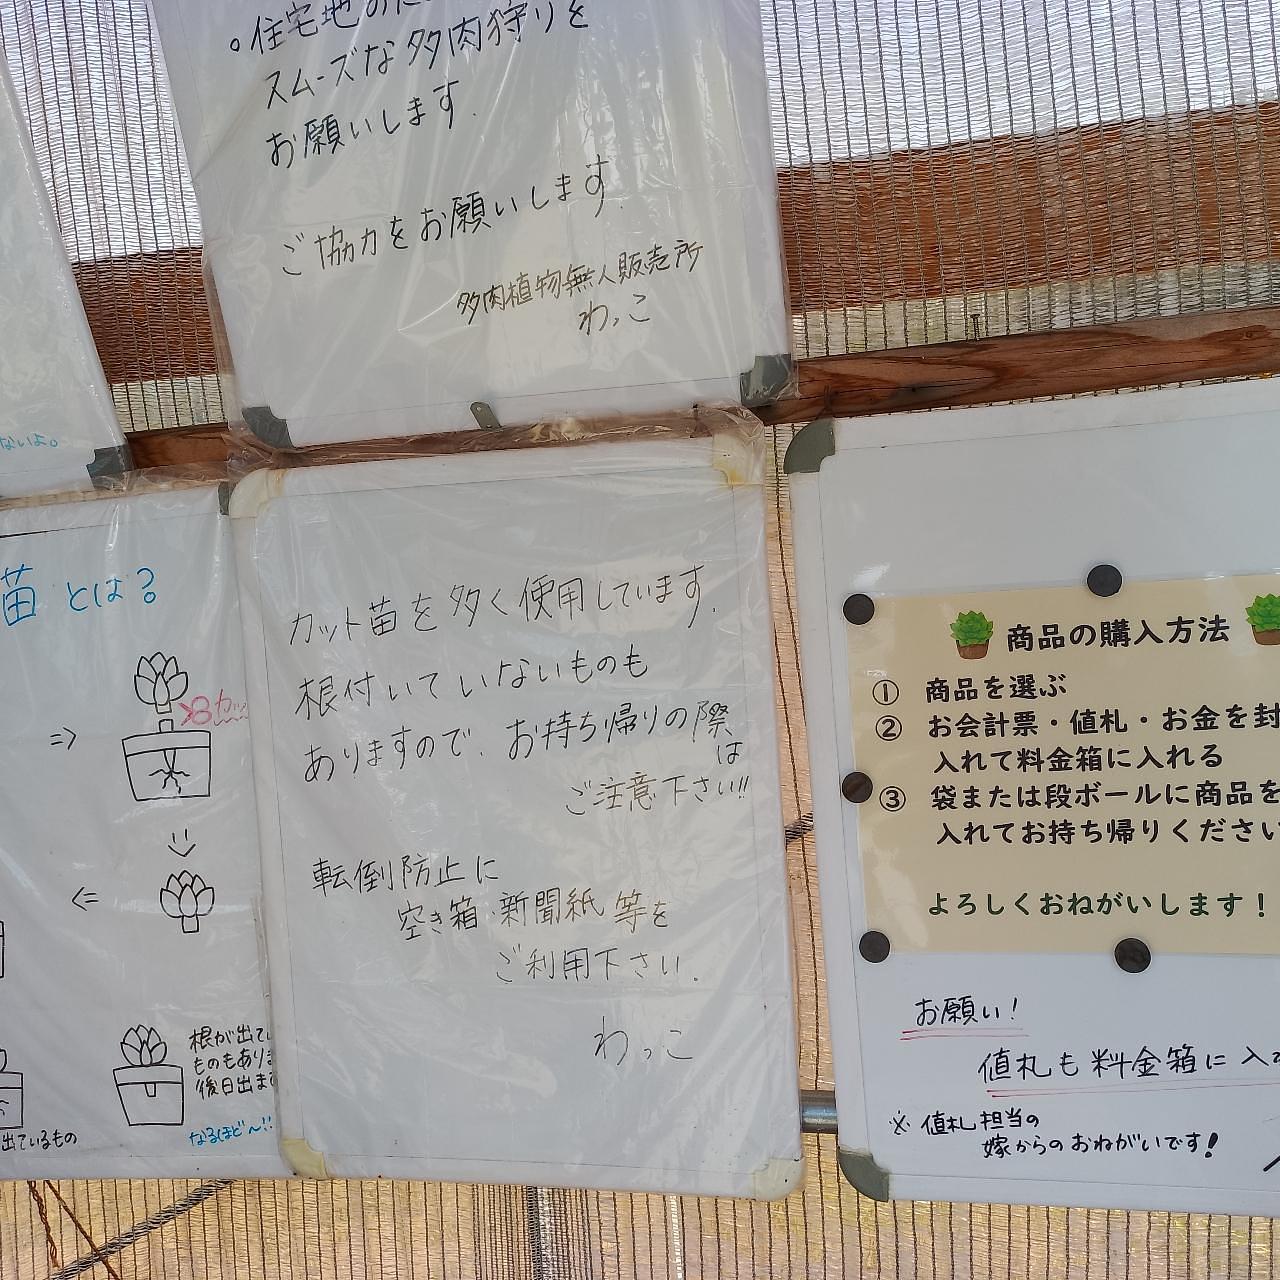 。住宅地の
スムーズな多肉狩りを
お願いします.
ご協力をお願いします.
多肉植物無人販売所
わっこ
ないよ。
苗 とは？
⇒
⇐
根が出て
ものもあり
後日出ま
なるほど〜!!
出ているもの
カット苗を多く使用しています.
根付いていないものも
ありますので、お持ち帰りの際
は
ご注意下さい!!
転倒防止に
空き箱・新聞紙 等を
ご利用下さい.
わっこ
商品の購入方法
① 商品を選ぶ
② お会計票・値札・お金を封
入れて料金箱に入れる
③ 袋または段ボールに商品を
入れてお持ち帰りください
よろしくおねがいします！
お願い！
値札も料金箱に入
※ 値札担当の
嫁からのおねがいです！